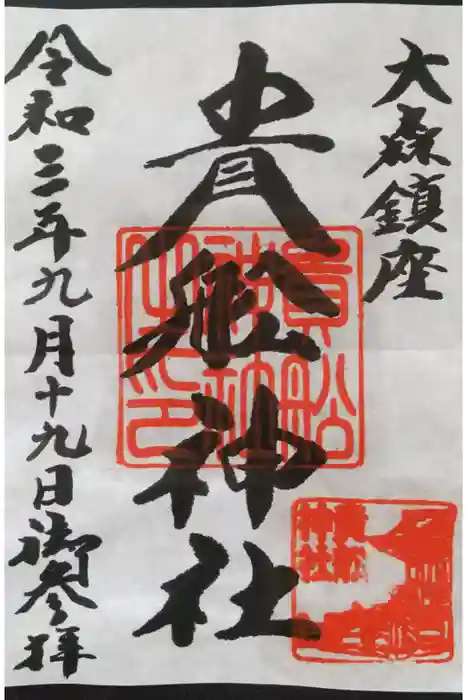 大森鎮座
貴船神社
令和三年九月十九日御参拝
貴船神社